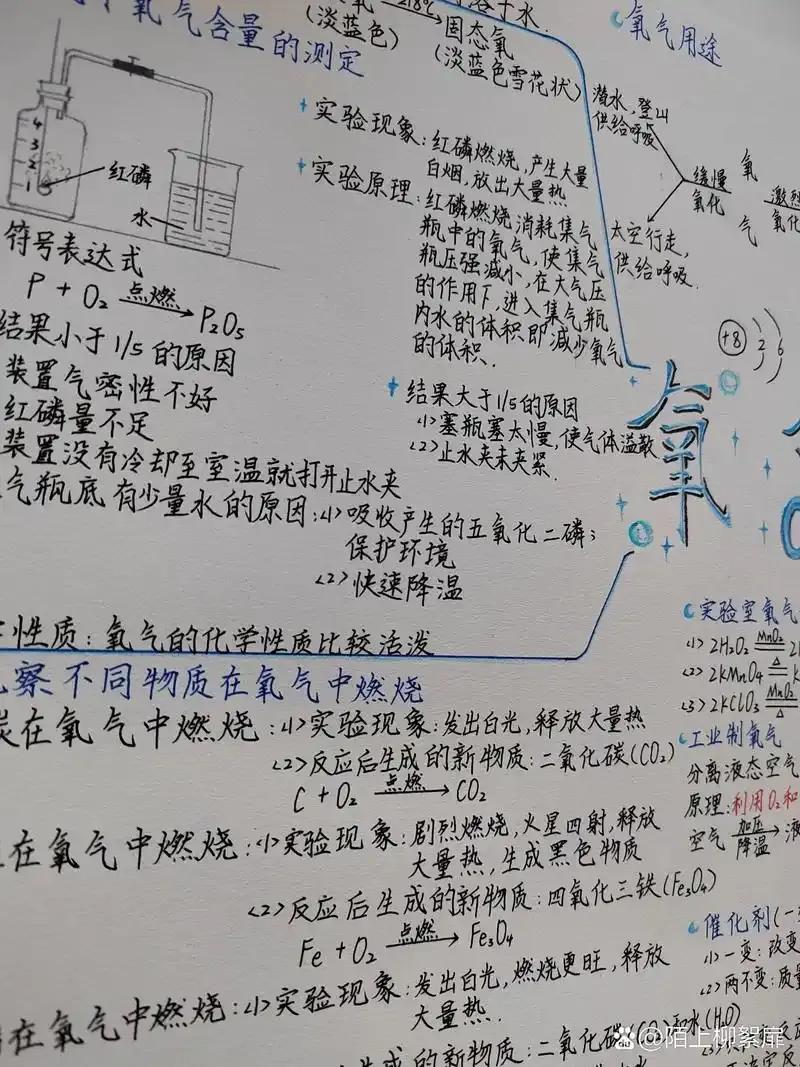 氧气含量的测定
-218℃
(淡蓝色)
固态氧
(淡蓝色雪花状)
4
3
2
1
红磷
水
符号表达式
P + O₂ 点燃→ P₂O₅
结果小于1/5的原因
装置气密性不好
红磷量不足
装置没有冷却至室温就打开止水夹
气瓶底有少量水的原因:<1>吸收产生的五氧化二磷;
保护环境
<2>快速降温
实验现象:红磷燃烧,产生大量
白烟,放出大量热
实验原理:红磷燃烧消耗集气
瓶中的氧气,使集气
瓶压强减小,在大气压
的作用下,进入集气瓶
内水的体积即减少氧气
的体积.
结果大于1/5的原因
<1>塞瓶塞太慢,使气体溢散
<2>止水夹未夹紧.
性质:氧气的化学性质比较活泼
察不同物质在氧气中燃烧
炭在氧气中燃烧:<1>实验现象:发出白光,释放大量热
<2>反应后生成的新物质:二氧化碳(CO₂)
C + O₂ 点燃→ CO₂
在氧气中燃烧:<1>实验现象:剧烈燃烧,火星四射,释放
大量热,生成黑色物质
<2>反应后生成的新物质:四氧化三铁(Fe₃O₄)
Fe + O₂ 点燃→ Fe₃O₄
在氧气中燃烧:<1>实验现象:发出白光,燃烧更旺,释放
大量热.
成的新物质:二氧化碳(CO₂)和水(H₂O)
氧气用途
潜水,登山
供给呼吸
缓慢
氧化
氧
气
激烈
氧化
太空行走,
供给呼吸.
+8 2 6
氧
实验室氧气
<1> 2H₂O₂ MnO₂
<2> 2KMnO₄ △
<3> 2KClO₃ MnO₂ △
工业制氧气
分离液态空气
原理:利用O₂和
空气 加压 降温→ 液
催化剂(一
<1>一变:改变
<2>两不变:质量
@陌上柳絮扉